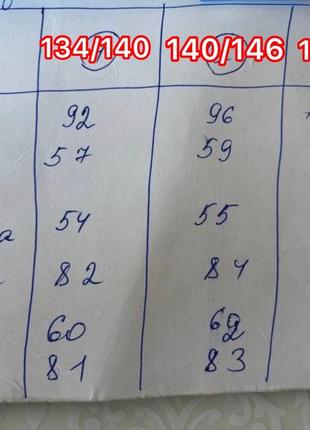 134/140 140/146 1
92 96
57 59
а 54 55
82 84
60 62
81 83